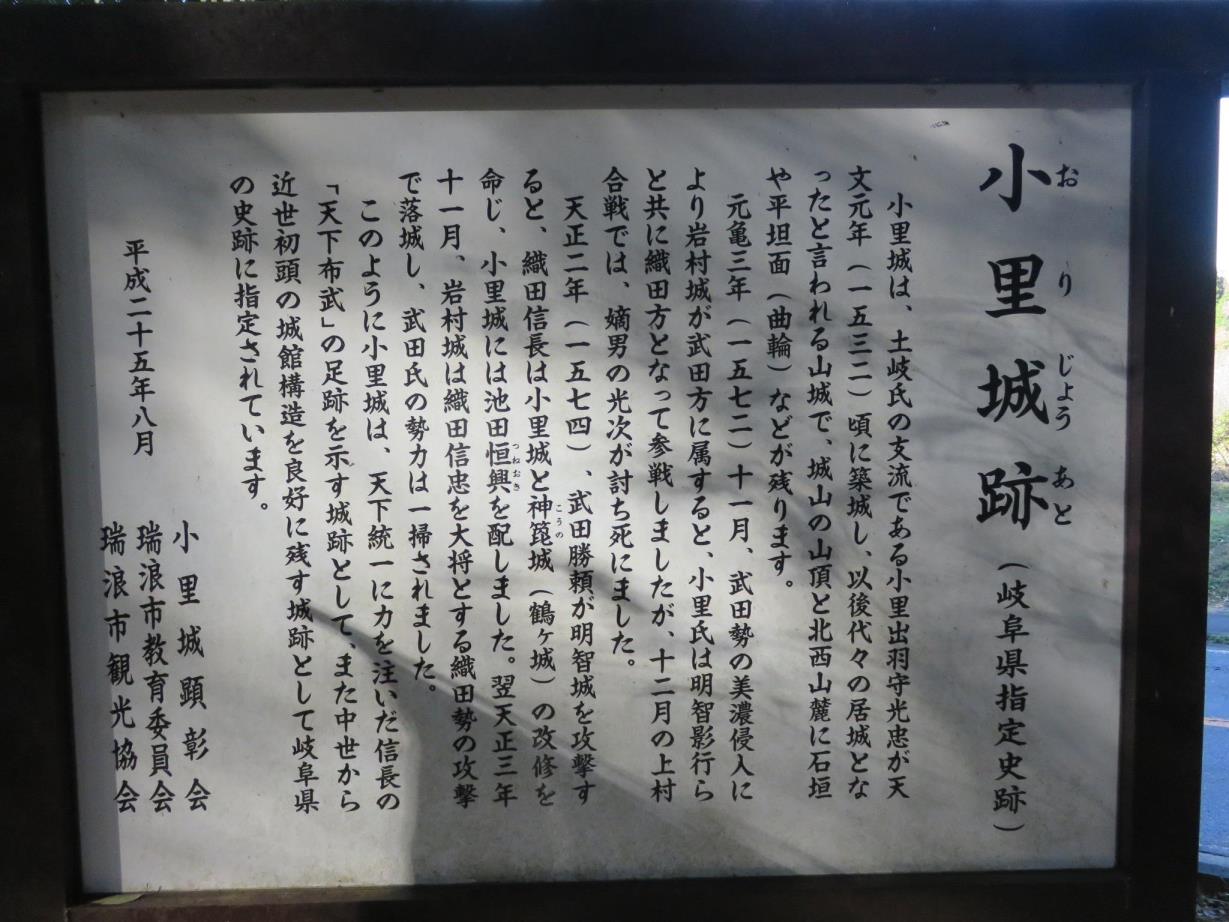 小里城跡（岐阜県指定史跡）
おりじょうあと
小里城は、土岐氏の支流である小里出羽守光忠が天
文元年（一五三二）頃に築城し、以後代々の居城とな
ったと言われる山城で、城山の山頂と北西山麓に石垣
や平坦面（曲輪）などが残ります。
元亀三年（一五七二）十一月、武田勢の美濃侵入に
より岩村城が武田方に属すると、小里氏は明智影行ら
と共に織田方となって参戦しましたが、十二月の上村
合戦では、嫡男の光次が討ち死にました。
天正二年（一五七四）、武田勝頼が明智城を攻撃す
ると、織田信長は小里城と神箆城（鶴ヶ城）の改修を
こうの
命じ、小里城には池田恒興を配しました。翌天正三年
つねおき
十一月、岩村城は織田信忠を大将とする織田勢の攻撃
で落城し、武田氏の勢力は一掃されました。
このように小里城は、天下統一に力を注いだ信長の
「天下布武」の足跡を示す城跡として、また中世から
近世初頭の城館構造を良好に残す城跡として岐阜県
の史跡に指定されています。
平成二十五年八月
小里城顕彰会
瑞浪市教育委員会
瑞浪市観光協会